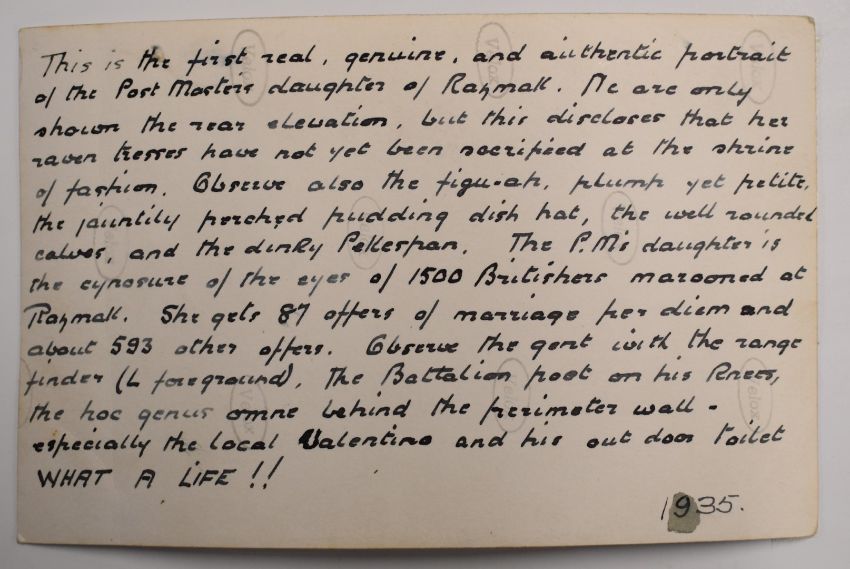 This is the first real, genuine, and authentic portrait
of the Post Masters daughter of Razmak. We are only
shown the rear elevation, but this discloses that her
raven tresses have not yet been sacrificed at the shrine
of fashion. Observe also the figu-ah, plump yet petite,
the jauntily perched pudding dish hat, the well rounded
calves, and the dinky Pekespan. The P.M's daughter is
the cynosure of the eyes of 1500 Britishers marooned at
Razmak. She gets 87 offers of marriage per diem and
about 593 other offers. Observe the gent with the range
finder (L foreground), the Battalion poet on his knees,
the hoc genus omne behind the perimeter wall -
especially the local Valentino and his out door toilet
WHAT A LIFE !!
1935.
Velox
Velox
Velox
Velox
Velox
Velox
Velox
Velox
Velox